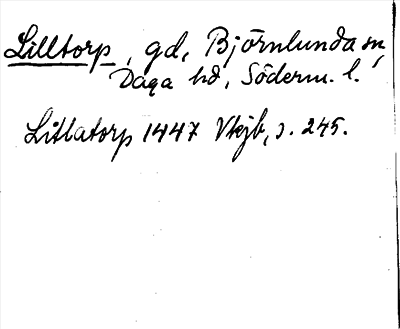 Lilltorp, gd, Björnlunda sn,
Daga hd, Söderm. l.
Litlatorp 1447 Vkjb, s. 245.